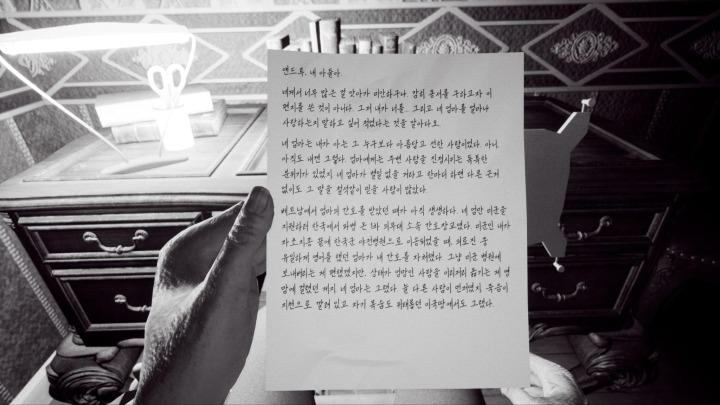 앤드류, 내 아들아.
네게서 너무 많은 걸 앗아가 미안하구나. 감히 용서를 구하고자 이
편지를 쓴 것이 아니다. 그저 내가 너를, 그리고 네 엄마를 얼마나
사랑하는지 말하고 싶어 적었다는 것을 알아다오.
네 엄마는 내가 아는 그 누구보다 아름답고 선한 사람이었다. 아니,
아직도 내겐 그렇다. 엄마에게는 주변 사람을 진정시키는 독특한
분위기가 있었지. 네 엄마가 별일 없을 거라고 한마디 하면 다른 근거
없이도 그 말을 철석같이 믿을 사람이 많았다.
베트남에서 엄마의 간호를 받았던 때가 아직 생생하다. 네 엄만 미군을
지원하러 한국에서 파병 온 1차 의무대 소속 간호장교였다. 미군인 내가
착오 끝에 한국군 야전병원으로 이송되었을 때, 의료진 중
유일하게 영어를 했던 엄마가 내 간호를 자처했다. 그냥 미군 병원에
보내버리는 게 편했겠지만, 상태가 엉망인 사람을 이리저리 옮기는 게 영
맘에 걸렸던 게지. 네 엄마는 그랬다. 늘 다른 사람이 먼저였지. 죽음이
지천으로 깔려 있고 자기 목숨도 위태롭던 이국땅에서도 그랬다.